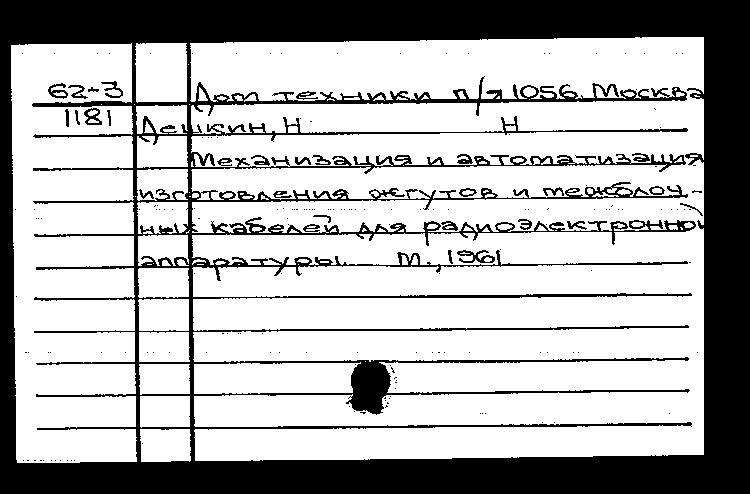 62-3 Дом техники п/я 1056. Москва
1181
Дешкин, Н Н
Механизация и автоматизация
изготовления жгутов и межблоч-
ных кабелей для радиоэлектронной
аппаратуры. М., 1961